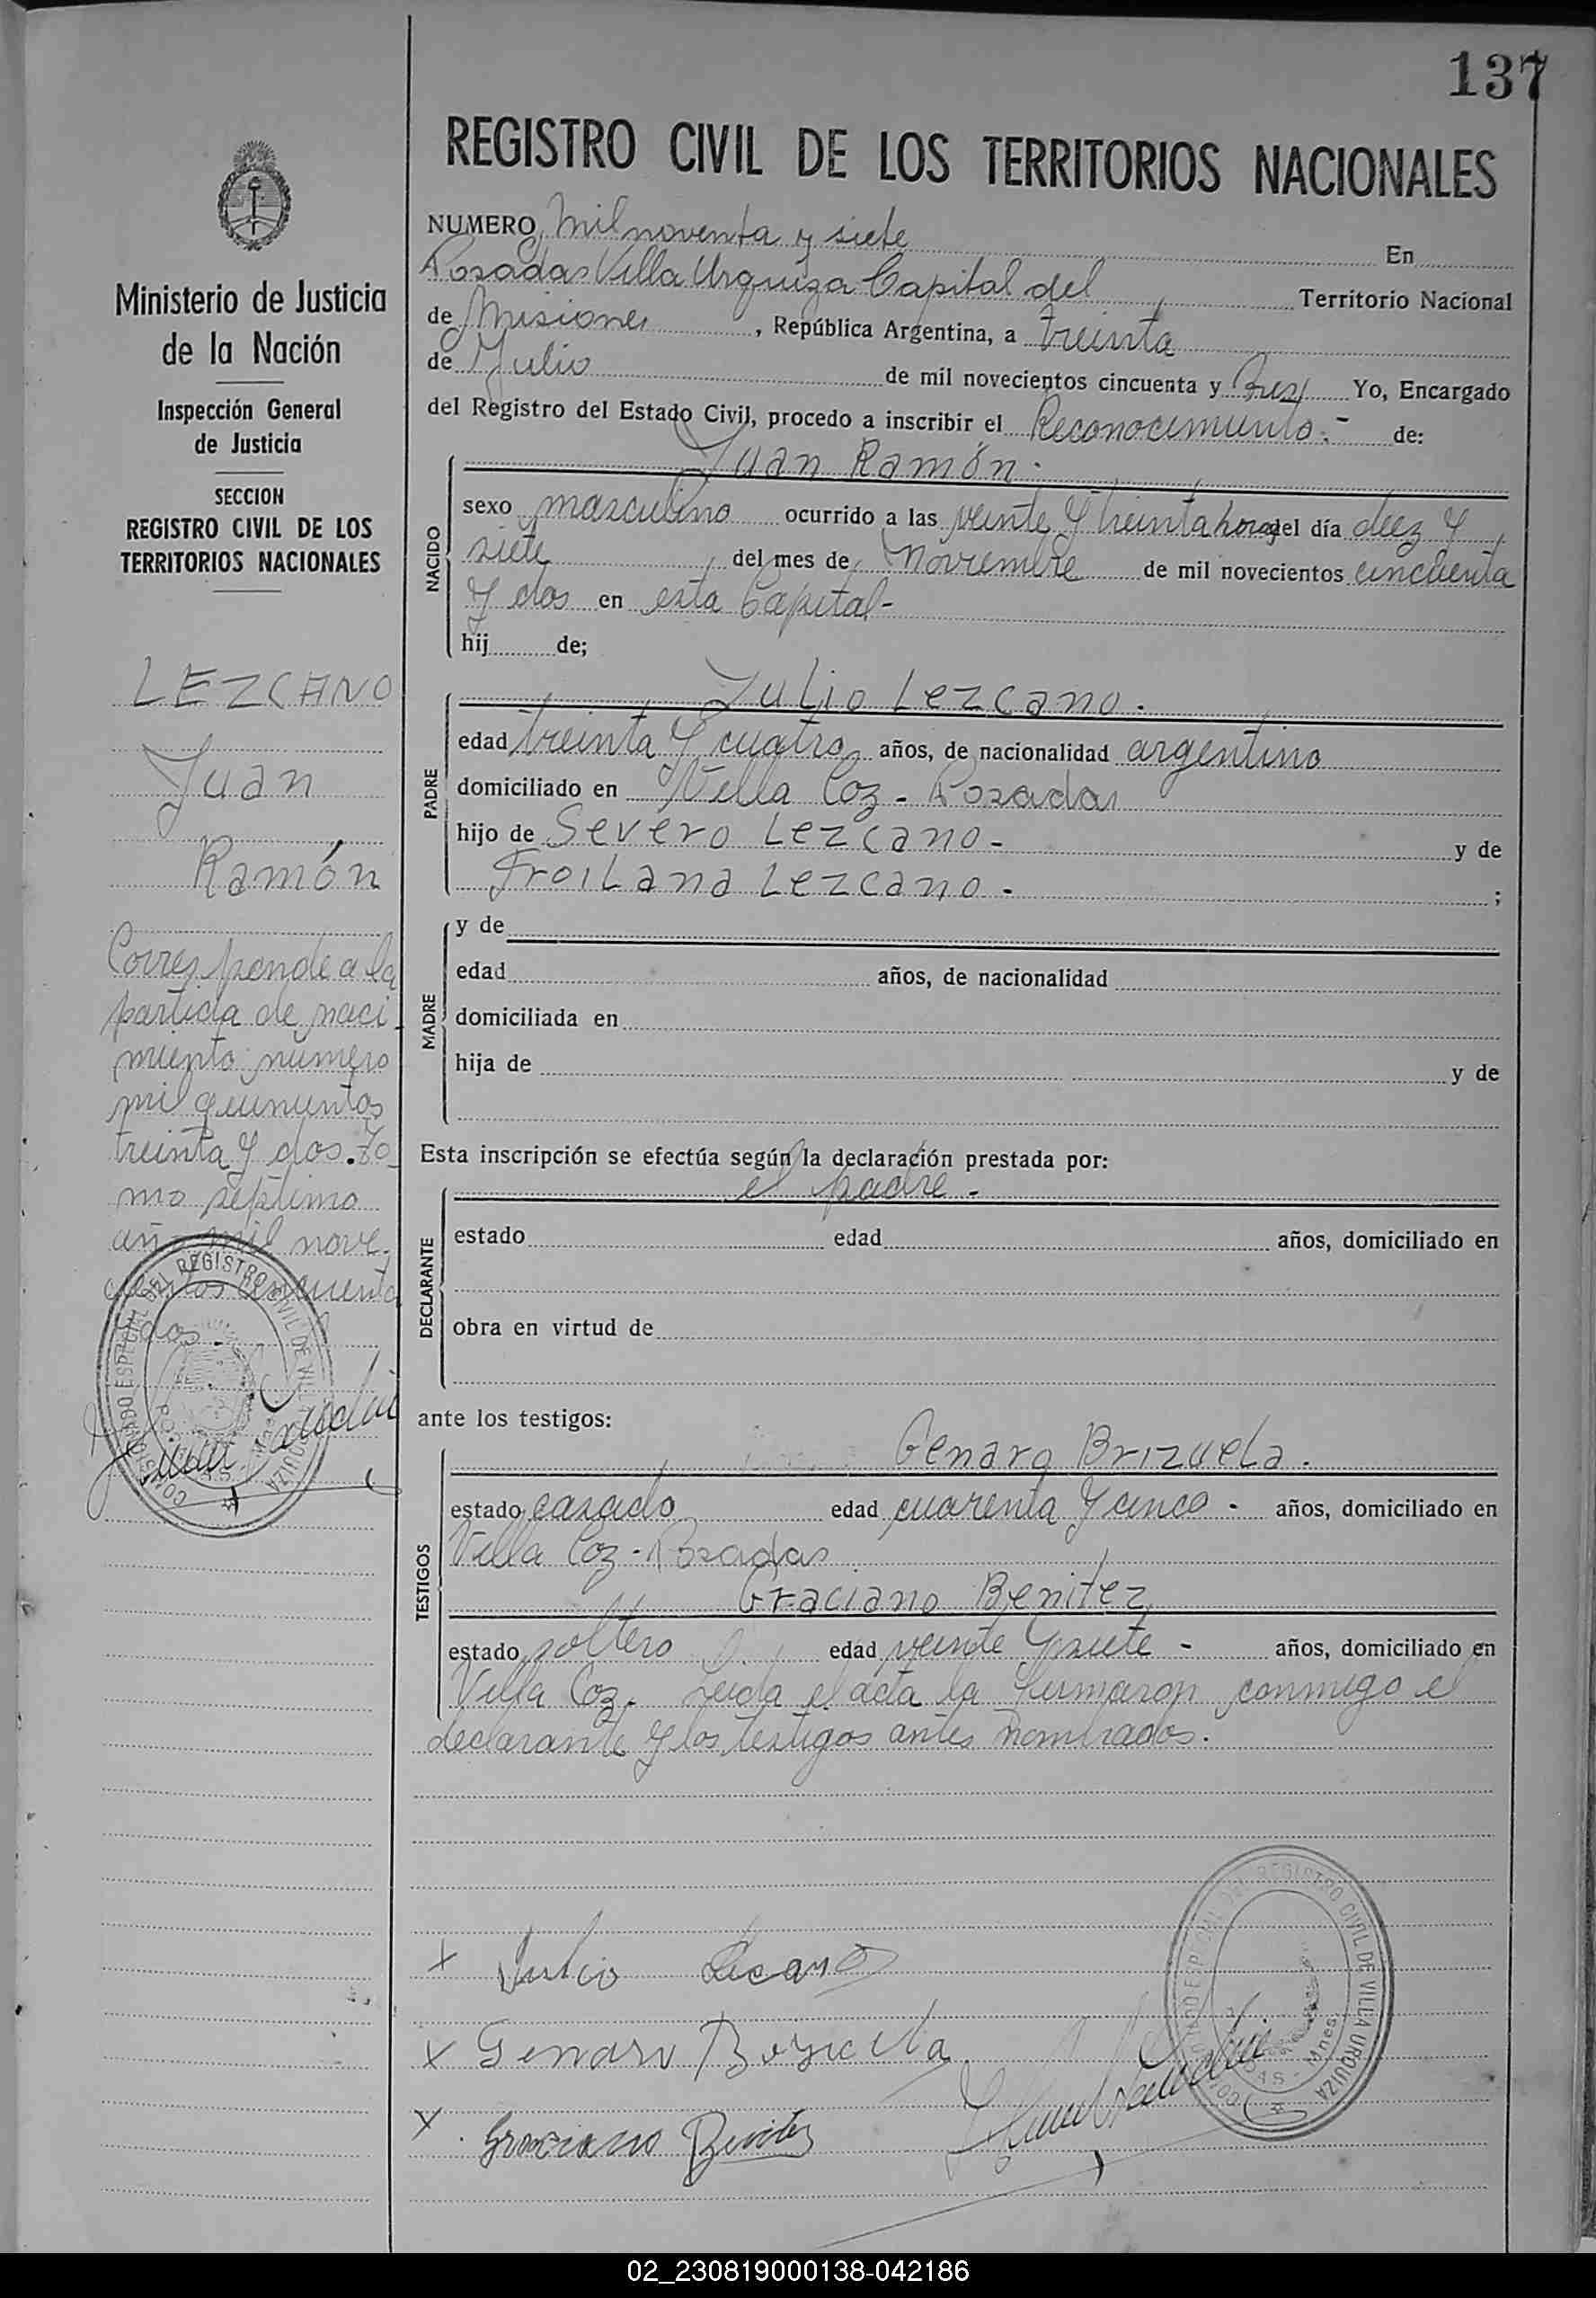 137
REGISTRO CIVIL DE LOS TERRITORIOS NACIONALES
NUMERO Mil noventa y siete En
Posadas Villa Urquiza Capital del Territorio Nacional
de Misiones, República Argentina, a treinta
de Julio de mil novecientos cincuenta y Tres Yo, Encargado
del Registro del Estado Civil, procedo a inscribir el Reconocimiento.- de:
Juan Ramón.
NACIDO
sexo masculino ocurrido a las veinte y treinta horas del día diez y
siete del mes de Noviembre de mil novecientos cincuenta
y dos en esta Capital-
hij de;
PADRE
Julio Lezcano.
edad treinta y cuatro años, de nacionalidad argentino
domiciliado en Villa Coz - Posadas
hijo de Severo Lezcano - y de
Froilana Lezcano - ;
MADRE
y de
edad años, de nacionalidad
domiciliada en
hija de y de
Esta inscripción se efectúa según la declaración prestada por:
DECLARANTE
el padre -
estado edad años, domiciliado en
obra en virtud de
ante los testigos:
TESTIGOS
Genaro Brizuela.
estado casado edad cuarenta y cinco - años, domiciliado en
Villa Coz - Posadas
Graciano Benitez
estado soltero edad veinte y siete - años, domiciliado en
Villa Coz. Leida el acta la firmaron conmigo el
declarante y los testigos antes nombrados.
x Julio Lescano
x Genaro Brizuela
x Graciano Benites
Ministerio de Justicia
de la Nación
Inspección General
de Justicia
SECCION
REGISTRO CIVIL DE LOS
TERRITORIOS NACIONALES
LEZCANO
Juan
Ramón
Corresponde a la
partida de naci-
miento número
mil quinientos
treinta y dos. To-
mo séptimo
año mil nove-
cientos cincuenta
y dos.
DEL REGISTRO CIVIL DE VILLA URQUIZA
DEL REGISTRO CIVIL DE VILLA URQUIZA
POSADAS - Mnes.
02_230819000138-042186